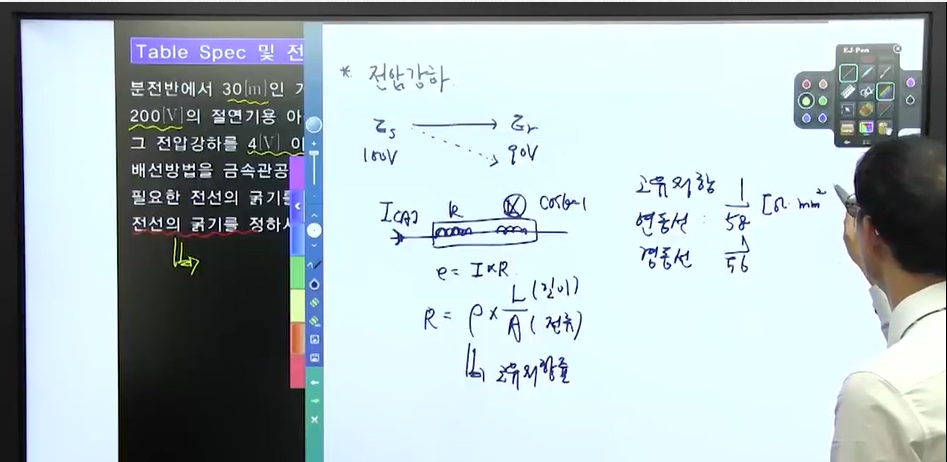 Table Spec 및 전
분전반에서 30[m]인 거
200[V]의 절연기용 아
그 전압강하를 4[V] 이
배선방법을 금속관공
필요한 전선의 굵기를
전선의 굵기를 정하시
* 전압강하
Es → Er
100V 90V
I(A) R X cosθ=1
e = I×R
R = ρ × L/A (길이) (전류)
고유저항률
고유저항 1/58 [Ω·mm²
연동선 :
경동선 1/56
EJ Pen